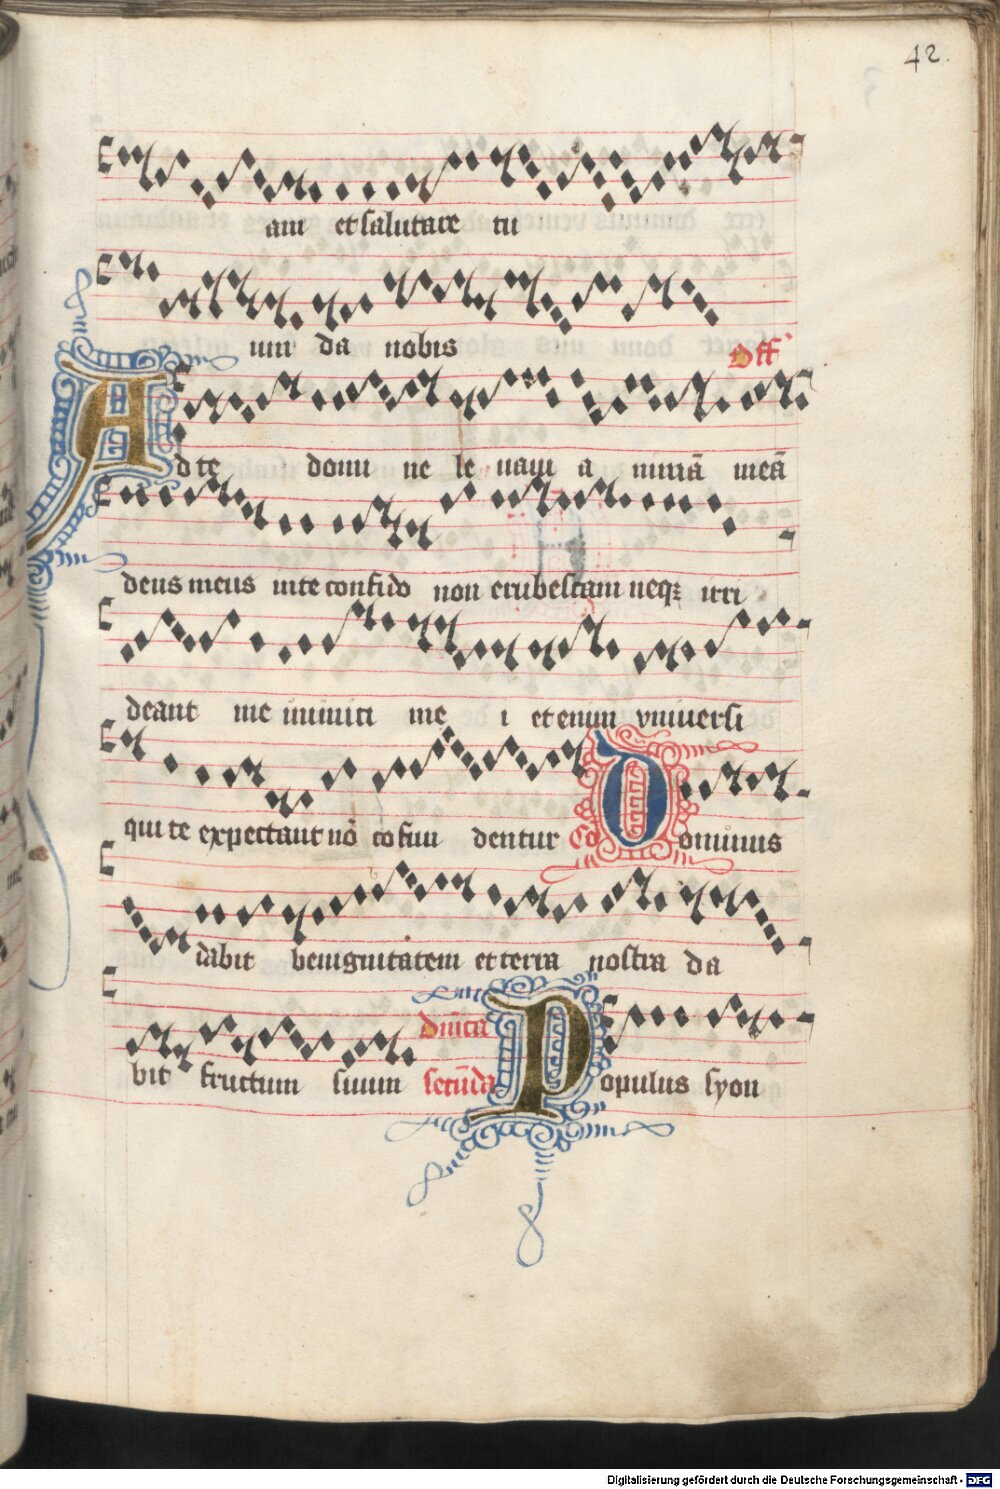 42.
am et salutare tu
um da nobis
Off
Ad te domi ne le uaui a nimā meā
deus meus in te confido non erubescam neqꝫ irri
deant me inimici me i et enim vniuersi
qui te expectant nō cofun dentur Co Dominus
dabit benignitatem et terra nostra da
bit fructum suum Dn̄ica secūda Populus syon
Digitalisierung gefördert durch die Deutsche Forschungsgemeinschaft - DFG